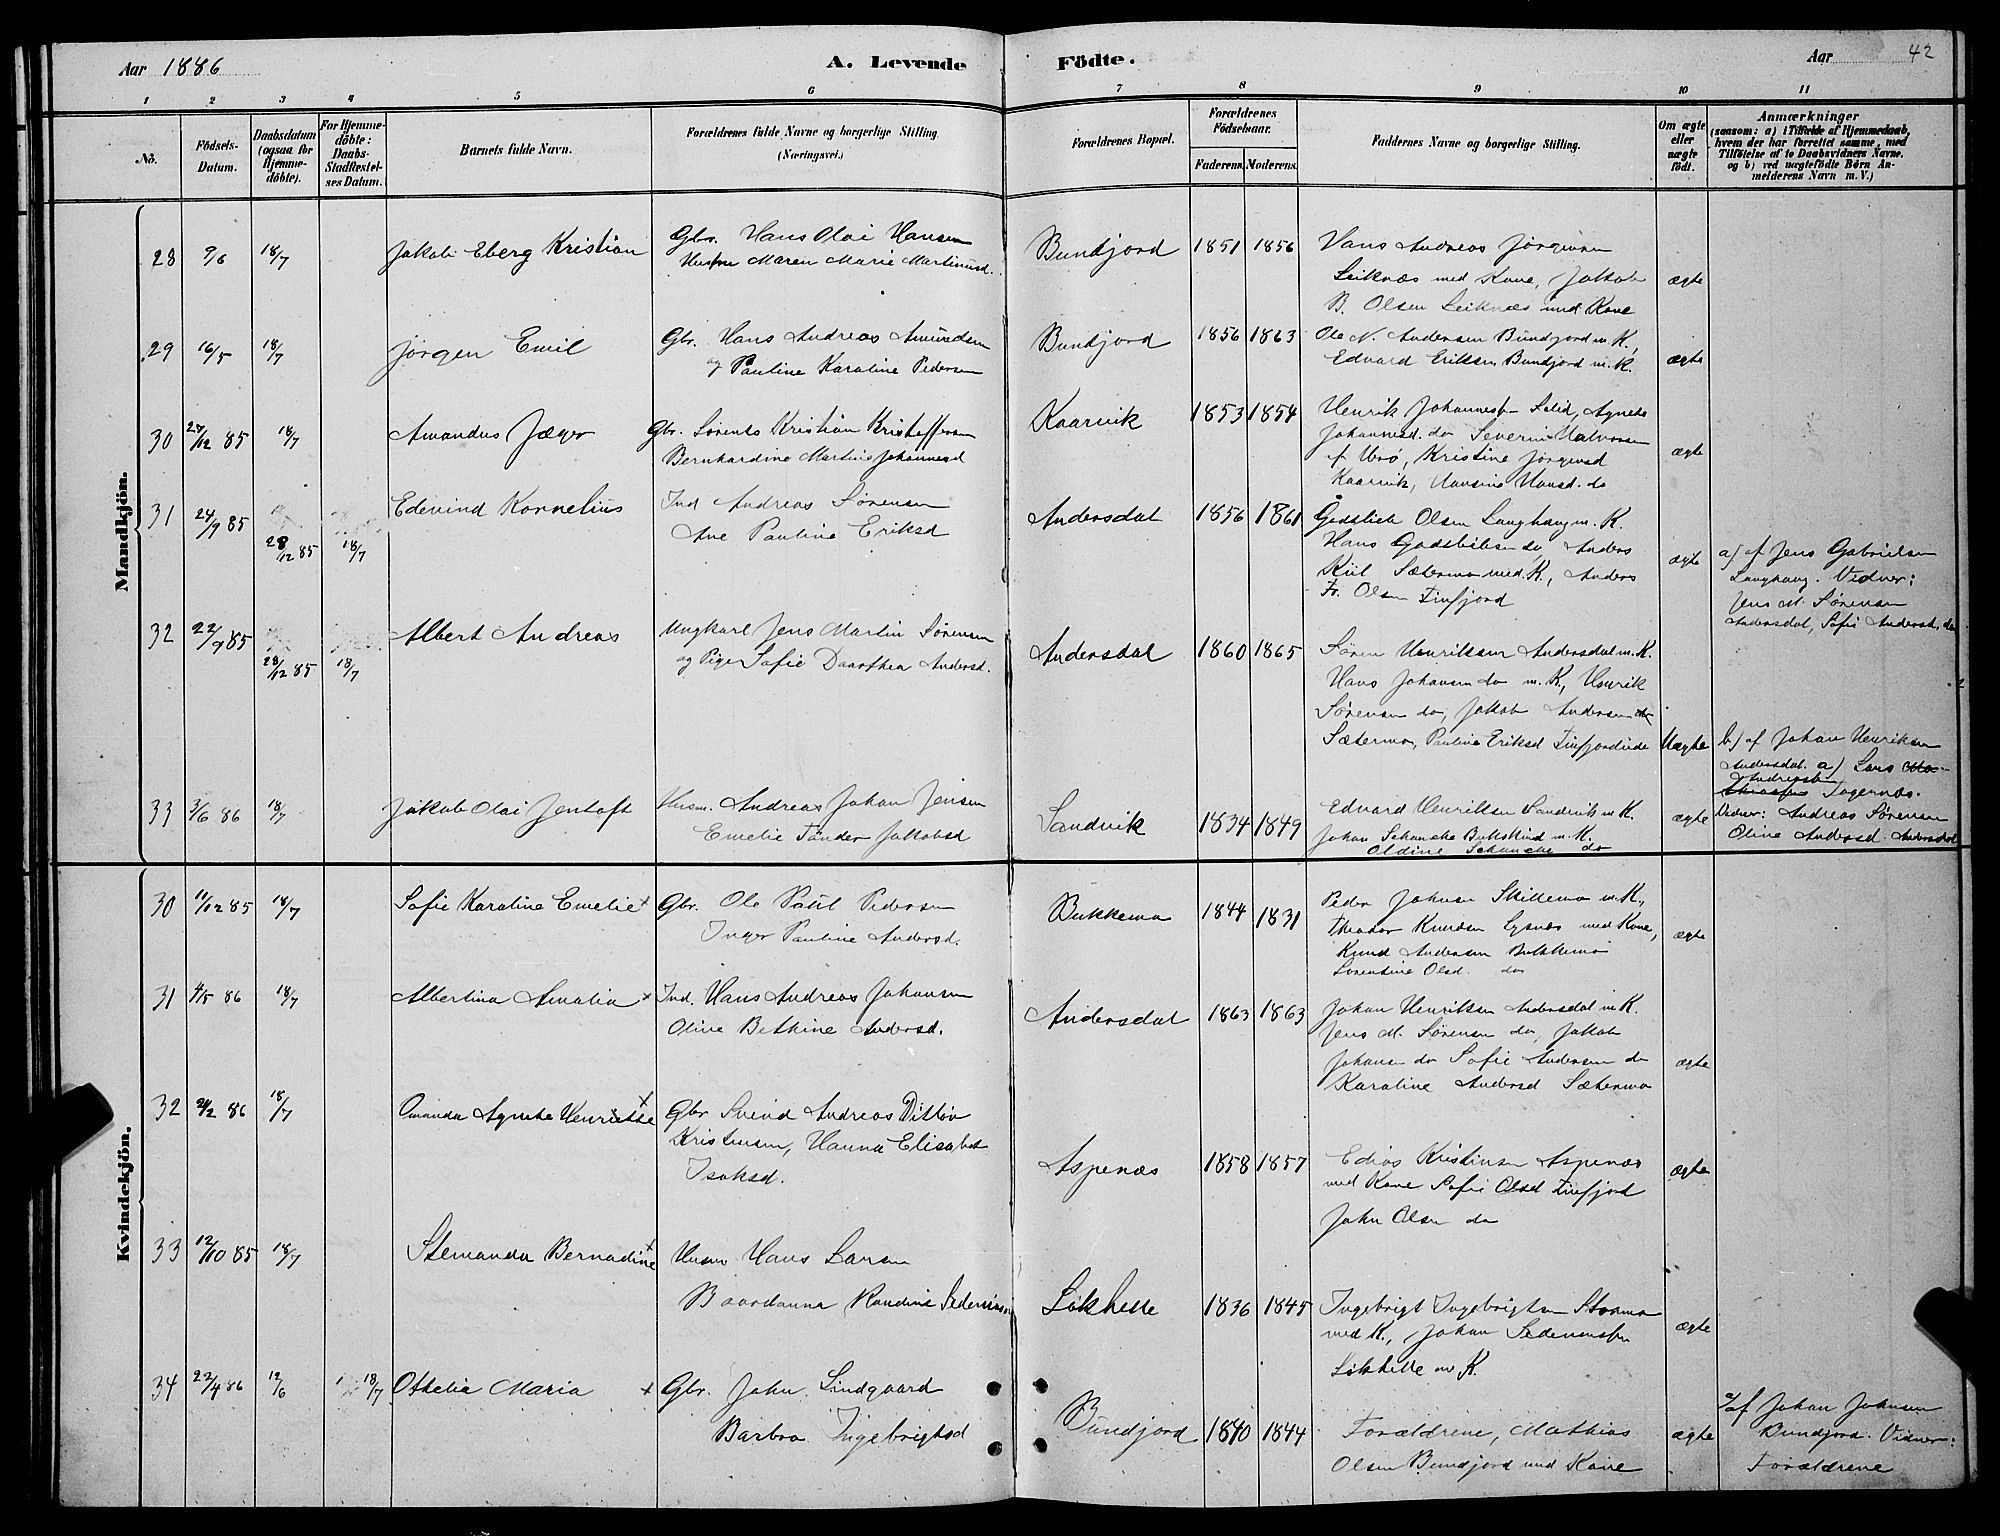 Aar 1886
A. Levende Födte.
Aar
42
1 2 3 4 5 6 7 8 9 10 11
No.
Födsels-Datum.
Daabsdatum (ogsaa for Hjemme-döbte).
For Hjemme-döbte: Daabs-Stadfæstel-ses Datum.
Barnets fulde Navn.
Forældrenes fulde Navne og borgerlige Stilling.
(Næringsvei.)
Forældrenes Bopæl.
Forældrenes Födselsaar.
Faderens. Moderens.
Faddernes Navne og borgerlige Stilling.
Om ægte eller uægte födt.
Anmærkninger
(saasom: a) i Tilfælde af Hjemmedaab, hvem der har forrettet samme, med Tilföielse af to Daabsvidners Navne, og b) ved uægtefödte Börn An-melderens Navn m. V.)
Mandkjön.
28 9/6 18/7 Jakob Eberg Kristian
Gbr. Hans Olai Hansen
Hustru Maren Marie Martinusd.
Bundjord 1851 1856
Hans Andreas Jørgensen
Leiknæs med Kone, Jakob
B. Olsen Leiknæs med Kone
ægte
29 16/5 18/7 Jørgen Emil
Gbr. Hans Andreas Amundsen
og Pauline Karoline Pedersen
Bundjord 1856 1863
Ole N. Andersen Bundjord m. K.,
Edvard Eriksen Bundjord m. K.
ægte
30 27/12 85 18/7 Amandus Jæger
Gbr. Sørents Kristian Kristoffersen
Bernhardine Martine Johannesd
Kaarvik 1853 1854
Henrik Johannes Selid, Agnete
Johannesd. do Severin Halvorsen
Kristine Jørgensd
Kaarvik, Hansine Hansd. do
ægte
31 24/9 85 28/12 85 18/7 Edevind Kornelius
Ind Andreas Sørensen
Ane Pauline Eriksd
Andersdal 1856 1861
Godtlieb Olsen Langhaug m. K.
Hans Godtliebsen do, Anders
Kiil Sætermo med K., Anders
Fr. Olsen Finfjord
ægte
a) af Jens Gabrielsen
Langhaug. Vidner:
Jens M. Sørensen
Andersdal, Sofie Andersd. do
32 22/9 85 28/12 85 18/7 Albert Andreas
Ungkarl Jens Martin Sørensen
og Pige Sofie Daarthea Andersd.
Andersdal 1860 1865
Søren Henriksen Andersdal m. K.
Hans Johansen do m. K., Henrik
Sørensen do, Jakob Andersen do
Sætermo, Pauline Eriksd Finfjordeide
Uægte
b) af Johan Henriksen
Andersdal. a) Lars
Andreassen
Vidner: Andreas Sørensen
Oline Andersd Andersdal
33 3/6 86 18/7 Jakob Olai Jentoft
Husm. Andreas Johan Jensen
Emelie Tønder Jakobsd
Sandvik 1834 1849
Edvard Henriksen Sandvik m. K.
Johan Schancke Bukskind m. K.
Oldine Schancke do
ægte
Kvindekjön.
30 11/12 85 18/7 Sofie Karoline Emelie +
Gbr. Ole Paul Pedersen
Inger Pauline Andersd.
Bukkemo 1844 1831
Peder Johnsen Skillemo m. K,
Theodor Knudsen Lysnæs med Kone,
Knud Andersen Bukkemo
Sørentine Olsd. do
ægte
31 4/5 86 18/7 Albertina Amalia +
Ind. Hans Andreas Johansen
Oline Betkine Andersd.
Andersdal 1863 1863
Johan Henriksen Andersdal m K.
Jens M. Sørensen do, Jakob
Johansen do Sofie Andersen do
Karoline Andersd Sætermo
ægte
32 2/2 86 18/7 Omanda Agnete Henriette +
Gbr Svend Andreas Ditlov
Kristensen, Hanna Elisabet
Isaksd.
Aspenæs 1858 1857
Edias Kristensen Aspenæs
med Kone Sofie Olsd Finfjord
John Olsen do
ægte
33 12/10 85 18/7 Stemanda Bernadine +
Husm Hans Larsen
Baardanna Randine Sedeniusd
Løkhelle 1836 1845
Ingebrigt Ingebrigtsen Stormo
med K., Johan Sedeniussen
Løkhelle m K.
ægte
34 22/4 86 12/6 18/7 Othelie Maria +
Gbr. John Lindgaard
Barbra Ingebrigtsd
Bundjord 1840 1844
Forældrene, Mathias
Olsen Bundjord med Kone
ægte
a/ af Johan Johnsen
Bundjord. Vidner:
Forældrene